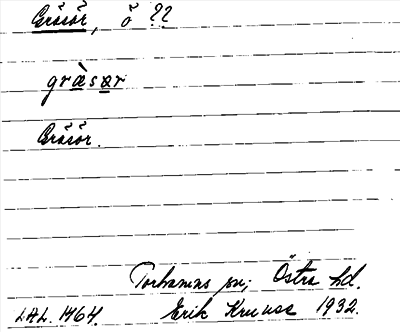 Gräsör, ö ??
gräsər
Gräsör.
Torhamns sn; Östra hd.
LAL. 1464. Erik Kruuse 1932.